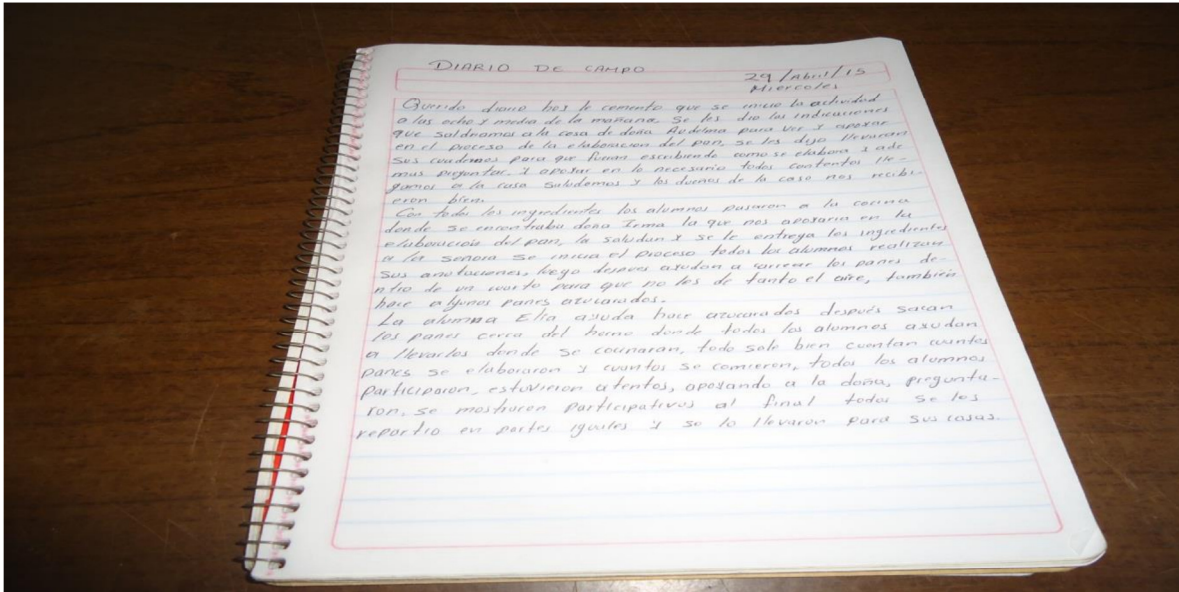 DIARIO DE CAMPO
29/Abril/15
Miercoles
Querido diario hoy le comento que se inicio la actividad
a las ocho y media de la mañana. Se les dio las indicaciones
que saldriamos a la casa de doña Audelma para ver y apoyar
en el proceso de la elaboracion del pan, se les dijo llevaran
sus cuadernos para que fueran escribiendo como se elabora y ade
mas preguntar y apoyar en lo necesario todos contentos lle-
gamos a la casa saludamos y los dueños de la casa nos recibi-
eron bien.
Con todos los ingredientes los alumnos pasaron a la cocina
donde se encontraba doña Irma la que nos apoyaria en la
elaboración del pan, la saludan y se le entrega los ingredientes
a la señora se inicia el proceso todos los alumnos realizan
sus anotaciones, luego despues ayudan a acarrear los panes de-
ntro de un cuarto para que no les de tanto el aire, tambien
hace algunos panes azucarados.
La alumna Elia ayuda hace azucarados después sacan
los panes cerca del horno donde todos los alumnos ayudan
a llevarlos donde se cocinaran, todo sale bien cuentan cuantos
panes se elaboraron y cuantos se comieron, todos los alumnos
participaron, estuvieron atentos, apoyando a la doña, pregunta-
ron, se mostraron participativos al final todos se les
repartio en partes iguales y se lo llevaron para sus casas.